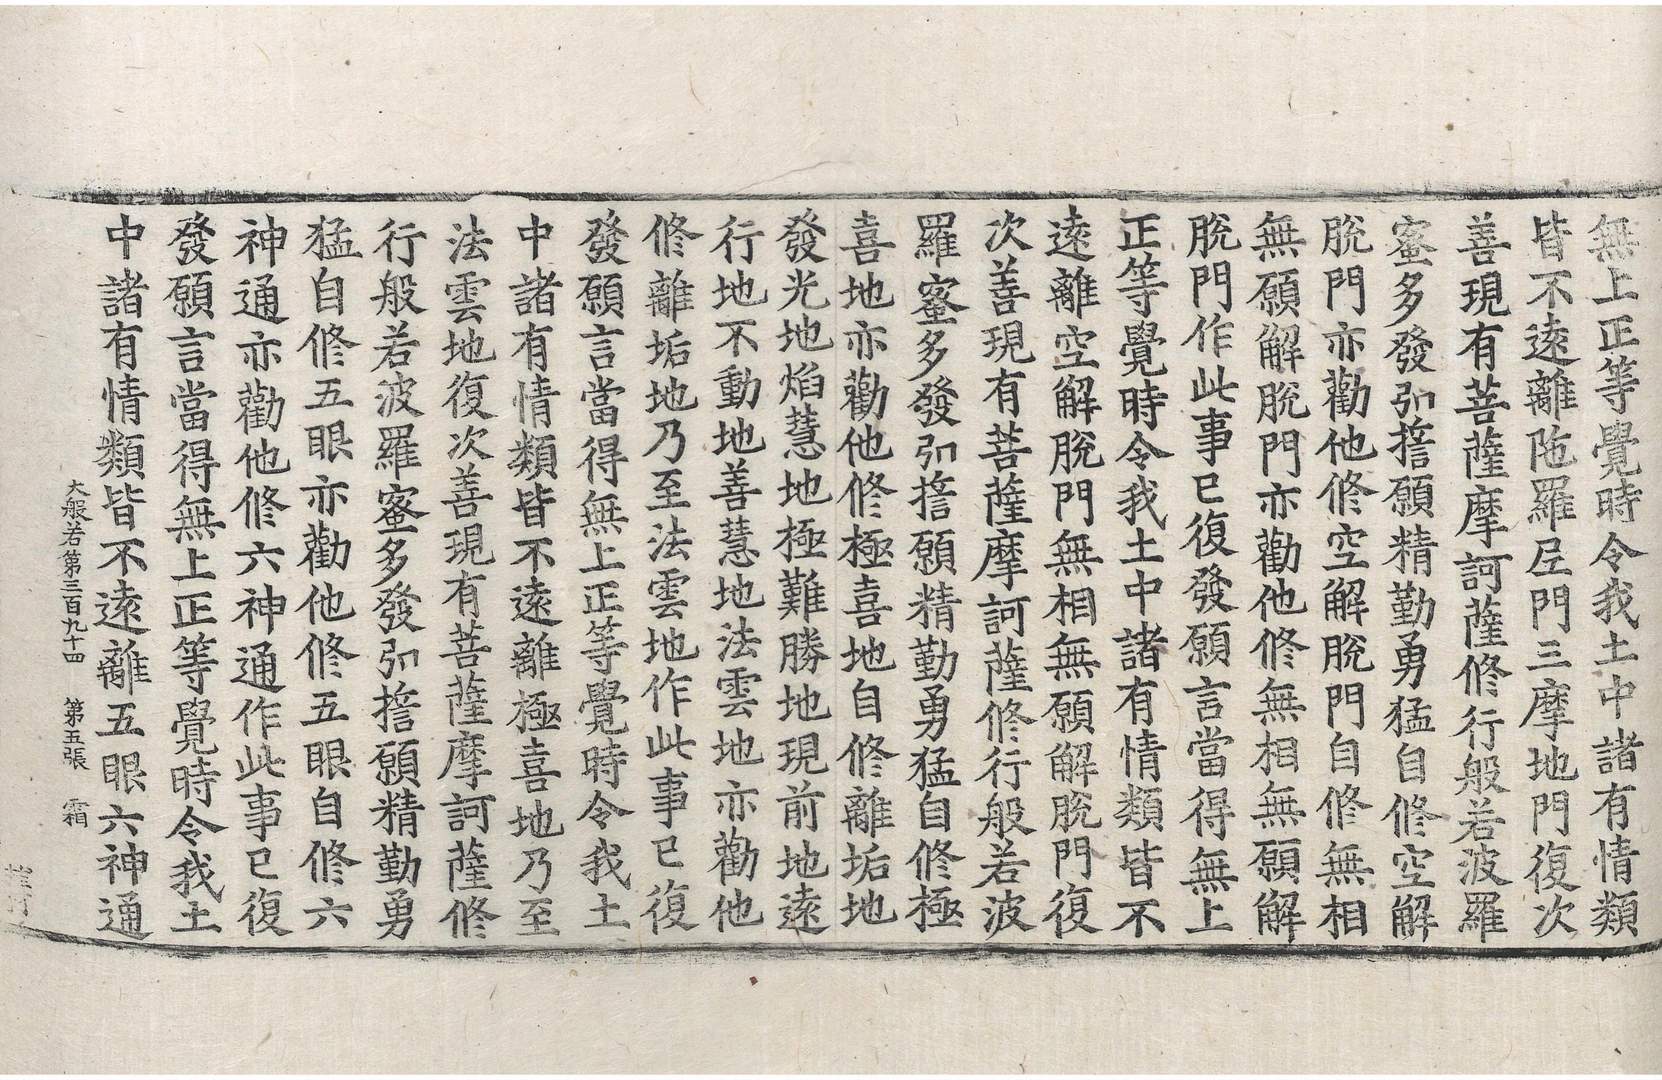 無上正等覺時令我土中諸有情類
皆不遠離陁羅尼門三摩地門復次
善現有菩薩摩訶薩修行般若波羅
蜜多發弘誓願精勤勇猛自修空解
脫門亦勸他修空解脫門自修無相
無願解脫門亦勸他修無相無願解
脫門作此事已復發願言當得無上
正等覺時令我土中諸有情類皆不
遠離空解脫門無相無願解脫門復
次善現有菩薩摩訶薩修行般若波
羅蜜多發弘誓願精勤勇猛自修極
喜地亦勸他修極喜地自修離垢地
發光地焰慧地極難勝地現前地遠
行地不動地善慧地法雲地亦勸他
修離垢地乃至法雲地作此事已復
發願言當得無上正等覺時令我土
中諸有情類皆不遠離極喜地乃至
法雲地復次善現有菩薩摩訶薩修
行般若波羅蜜多發弘誓願精勤勇
猛自修五眼亦勸他修五眼自修六
神通亦勸他修六神通作此事已復
發願言當得無上正等覺時令我土
中諸有情類皆不遠離五眼六神通
大般若第三百九十四 第五張 霜